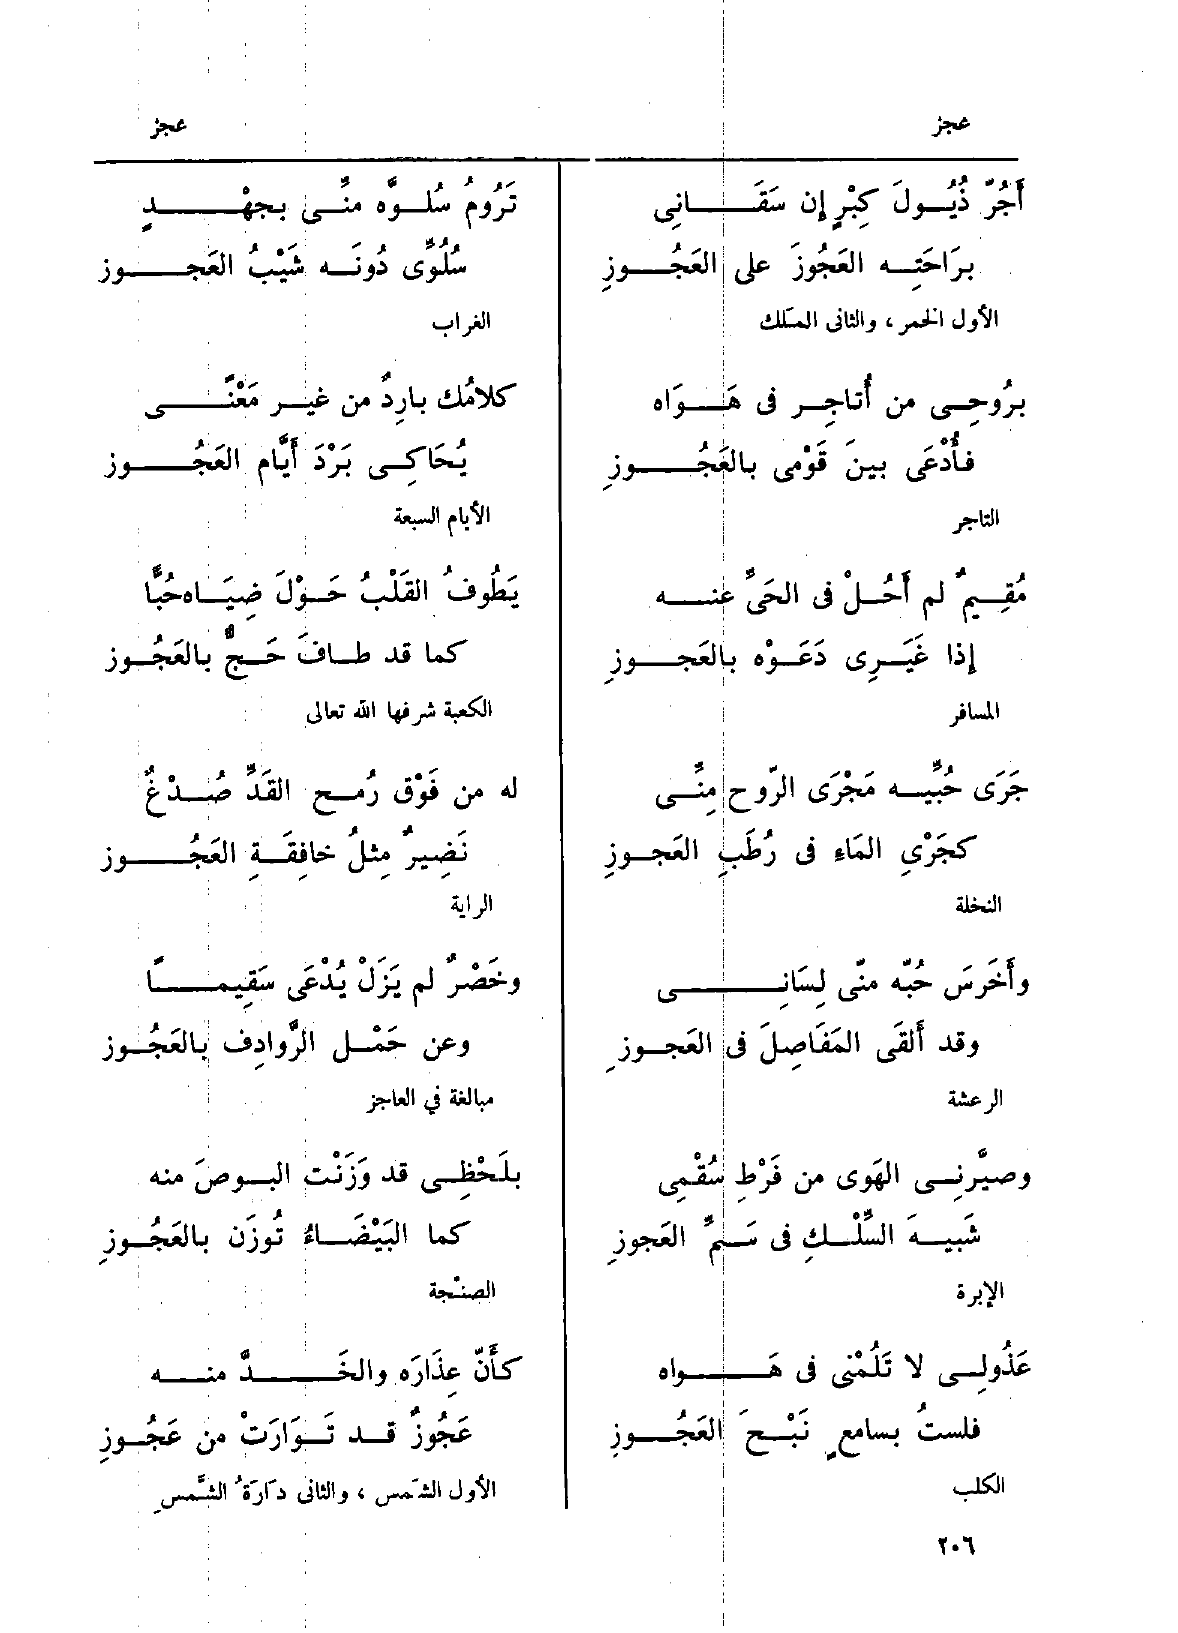 عجز
عجز
أَجُرّ ذُيُولَ كِبْرٍ إن سَقَانِى
بِرَاحَتِه العَجُوزَ على العَجُوزِ
الأول الخمر، والثانى المسْلك
بِرُوحِى من أُتاجِر فى هَوَاه
فأُدْعَى بينَ قَوْمى بالعَجُوزِ
التاجر
مُقِيمٌ لم أَحُلْ فى الحَىِّ عنه
إذا غَيْرِى دَعَوْه بالعَجوزِ
المسافر
جَرَى حُبِّيه مَجْرَى الرّوح مِنِّى
كجَرْىِ المَاءِ فى رُطَبِ العَجوزِ
النخلة
وأَخَرَسَ حُبّه منّى لِسَانِى
وقد ألقَى المَفَاصِلَ فى العَجوزِ
الرعشة
وصيَّرنِى الهَوى من فَرْطِ سُقْمِى
شَبيهَ السِّلْكِ فى سَمِّ العَجوزِ
الإبرة
عَذُولِى لا تَلُمْنى فى هَواه
فلستُ بسامعٍ نَبْحَ العَجُوزِ
الكلب
تَرُومُ سُلوَّه منِّى بجهْدٍ
سُلُوِّى دُونَه شَيْبُ العَجوز
الغراب
كلامُك باردٌ من غير مَعْنًى
يُحَاكِى بَرْدَ أَيَّام العَجُوز
الأيام السبعة
يَطُوفُ القَلْبُ حَوْلَ ضِيَاه حُبًّا
كما قد طافَ حَجٌّ بالعَجُوز
الكعبة شرفها الله تعالى
له من فَوْق رُمح القَدِّ صُدْغٌ
نَضِيرٌ مِثلُ خافِقَةِ العَجُوز
الراية
وخَصْرٌ لم يَزَلْ يُدْعَى سَقِيمًا
وعن حَمْل الرَّوادِف بالعَجُوز
مبالغة في العاجز
بلَحْظِى قد وَزَنْت البوصَ منه
كما البَيْضَاءُ تُوزَن بالعَجُوزِ
الصنْجة
كأنّ عِذَارَه والخَدَّ منه
عَجُوزٌ قد تَوَارَتْ من عَجُوزِ
الأول الشمس، والثانى دَارَةُ الشَّمسِ
٢٠٦